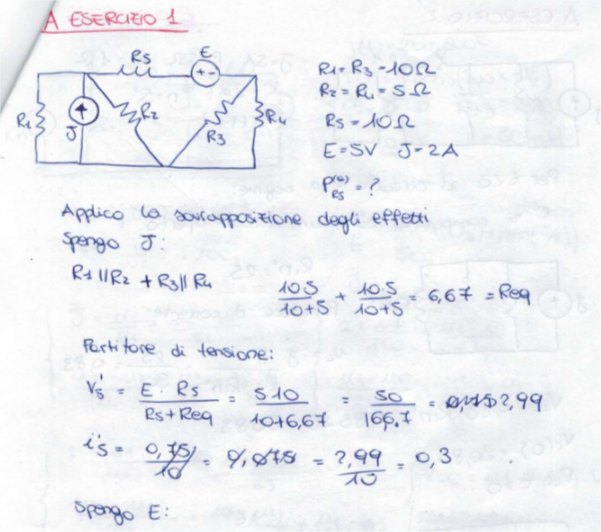 A ESERCIZIO 1
R5 E
R1 J R2 R3 R4
R1 = R3 = 10Ω
R2 = R4 = 5Ω
R5 = 10Ω
E = 5V J = 2A
P(a)R5 = ?
Applico la sovrapposizione degli effetti
Spengo J:
R1 || R2 + R3 || R4 10·5/10+5 + 10·5/10+5 = 6,67 = Req
Partitore di tensione:
V5' = E · R5 / R5 + Req = 5·10 / 10+6,67 = 50 / 166,7 = 2,99
i5' = 0,75/10 = 0,075 = 2,99/10 = 0,3
Spengo E: